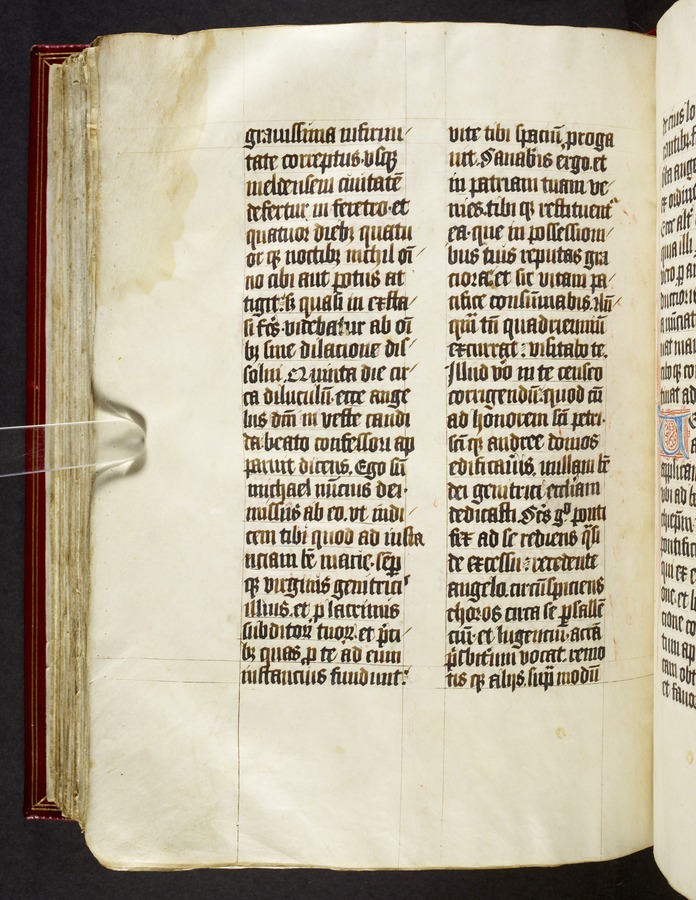 grauissima infirmi
tate correptus. vsq;
meldensem ciuitatē
defertur in feretro. et
quatuor dieb; quatu
or q; noctib; nichil oī
no cibi aut potus at
tigit. s; quasi in exsta
si fcs. videbatur ab oī
b; sine dilacione dis
solui. Quinta die cir
ca diluculū. ecce ange
lus dm̄ in veste candi
da. beato confessori ap
paruit dicens. Ego sū
michael nūcius dei.
missus ab eo. vt indi
cem tibi quod ad iusta
nciam bē marie. sēp
q; virginis genitrici⁹
illius. et p lacrimis
subditoꝝ tuoꝝ. et p̄ci
b; quas p te ad eum
instancius fundunt.
vite tibi spaciū proga
uit. Sanabis ergo. et
in patriam tuam ve
nies. tibi q; restituent
ea. que in possession
bus tuis reputas gra
ciora. et sic vitam pa
cifice consūmabis. Nū
qm̄ tn̄ quadrienniū
excurrat: visitabo te.
Illud vo in te censeo
corrigendū. quod cū
ad honorem sc̄i petri.
sc̄i q; andree domos
edificauis. nullam bē
dei genitrici eccliam
dedicasti. Scs gº ponti
fex ad se rediens q̄si
de excessu: recedente
angelo. circūspiciens
choros circa se psallē
ciū. et lugenciū. accā
p̄sbit'um vocat. remo
tis q; alijs. sup̄ modū